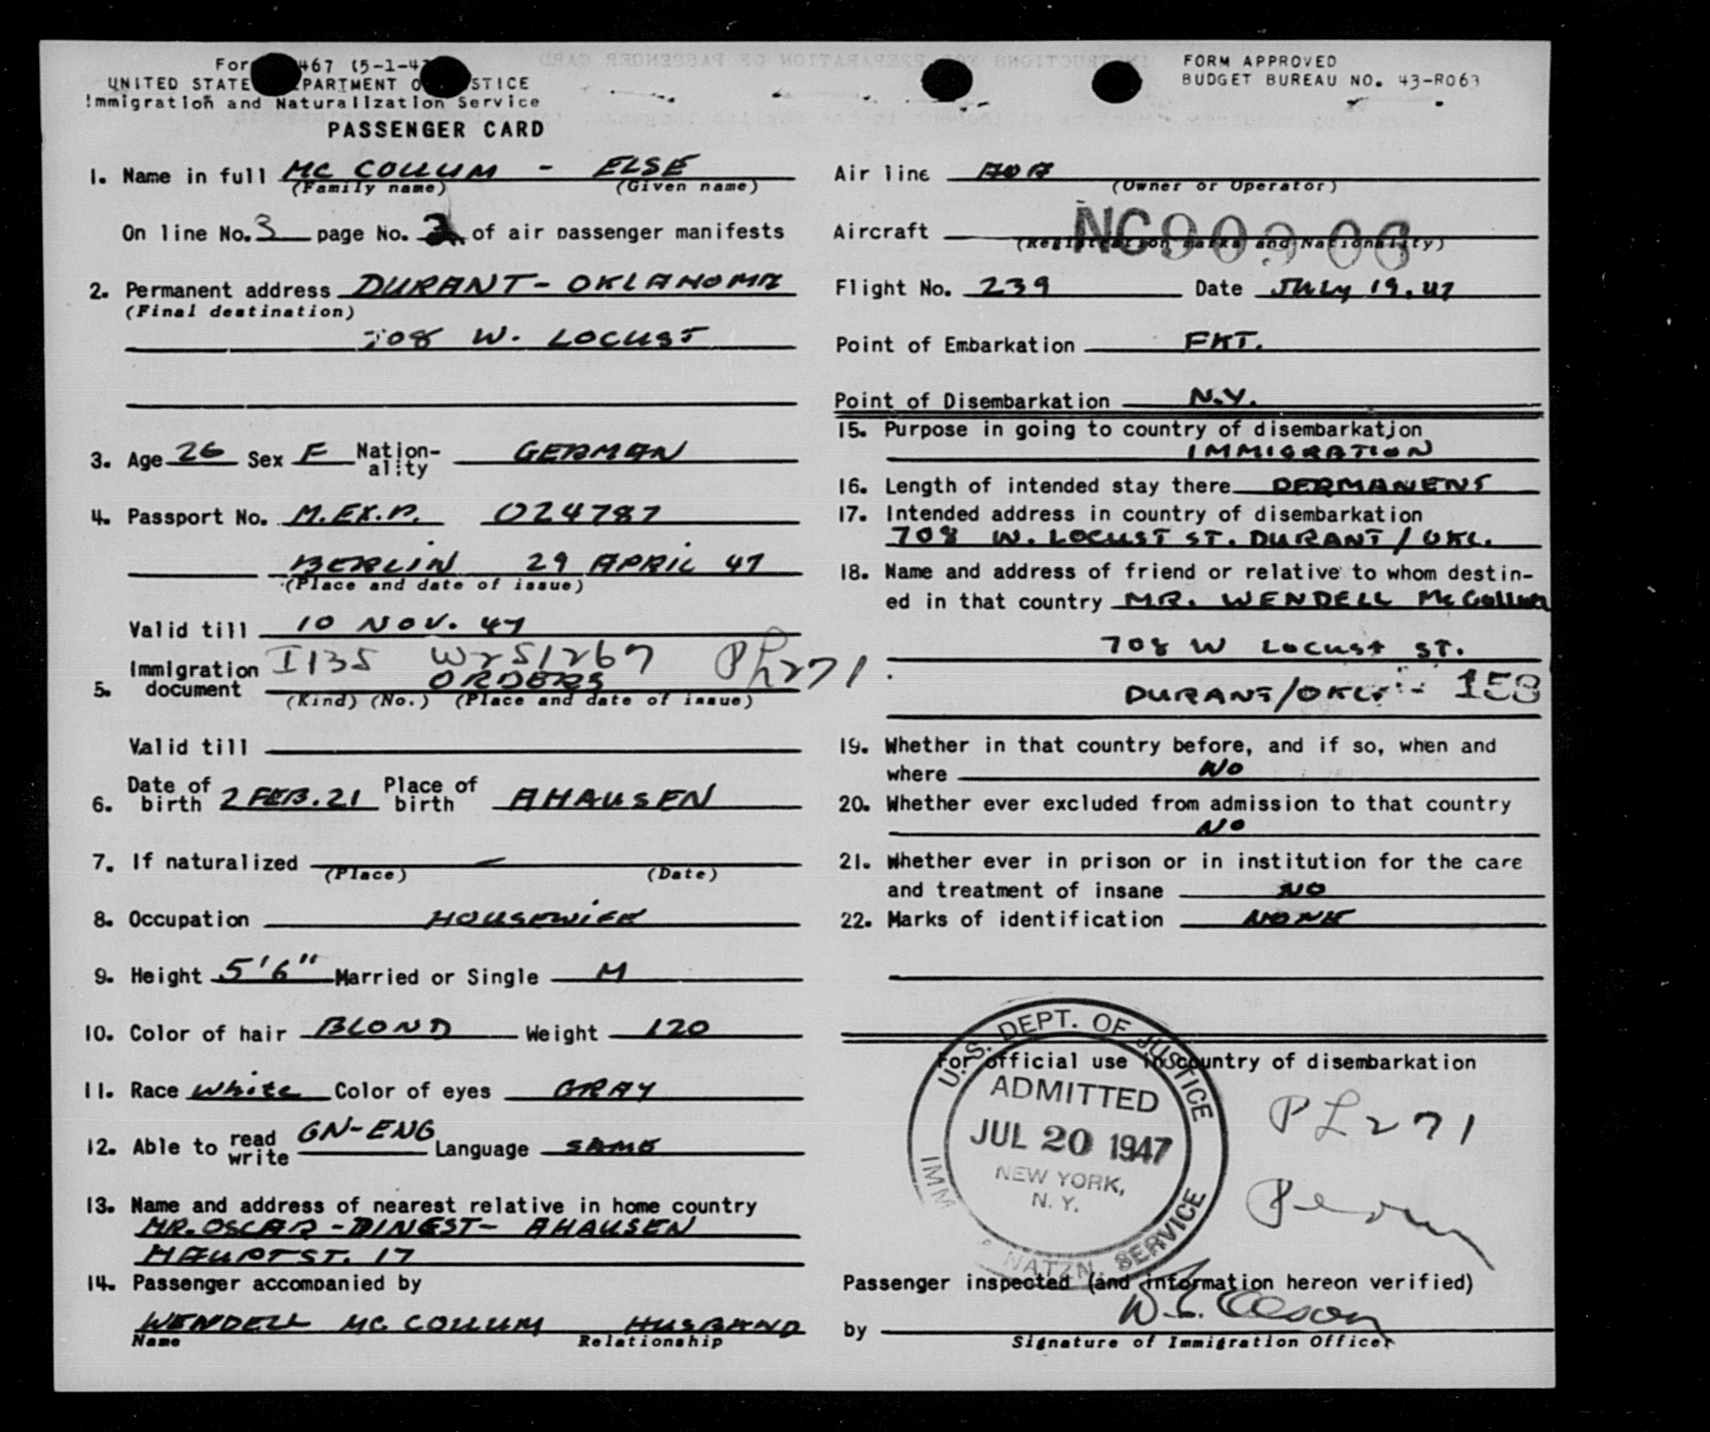 For 467 (5-1-4
UNITED STATE PARTMENT O STICE
Immigration and Naturalization Service
PASSENGER CARD
FORM APPROVED
BUDGET BUREAU NO. 43-R063
1. Name in full MC COLLUM - ELSE
(Family name) (Given name)
On line No. 3 page No. 2 of air passenger manifests
2. Permanent address DURANT - OKLAHOMA
(Final destination)
708 W. LOCUST
3. Age 26 Sex F Nation-ality GERMAN
4. Passport No. M.EX.P. 024787
BERLIN 29 APRIL 47
(Place and date of issue)
Valid till 10 NOV. 47
5. Immigration document I135 W251267 PL271
ORDERS
(Kind) (No.) (Place and date of issue)
Valid till
6. Date of birth 2 FEB. 21 Place of birth AHAUSEN
7. If naturalized -
(Place) (Date)
8. Occupation HOUSEWIFE
9. Height 5'6" Married or Single M
10. Color of hair BLOND Weight 120
11. Race White Color of eyes GRAY
12. Able to read write GN-ENG Language SAME
13. Name and address of nearest relative in home country
MR. OSCAR - DINGST - AHAUSEN
HAUPTST. 17
14. Passenger accompanied by
WENDELL MC COLLUM HUSBAND
Name Relationship
Air line AOA
(Owner or Operator)
Aircraft NC90906
(Registration marks and Nationality)
Flight No. 239 Date JULY 19, 47
Point of Embarkation FKT.
Point of Disembarkation N.Y.
15. Purpose in going to country of disembarkation
IMMIGRATION
16. Length of intended stay there PERMANENT
17. Intended address in country of disembarkation
708 W. LOCUST ST. DURANT / OKL.
18. Name and address of friend or relative to whom destin-
ed in that country MR. WENDELL McCollum
708 W LOCUST ST.
DURANT/OKL. 158
19. Whether in that country before, and if so, when and
where NO
20. Whether ever excluded from admission to that country
NO
21. Whether ever in prison or in institution for the care
and treatment of insane NO
22. Marks of identification NONE
For official use in country of disembarkation
U.S. DEPT. OF JUSTICE
ADMITTED
JUL 20 1947
NEW YORK,
N. Y.
IMM NATZN. SERVICE
PL271
Passenger inspected (and information hereon verified)
by
Signature of Immigration Officer